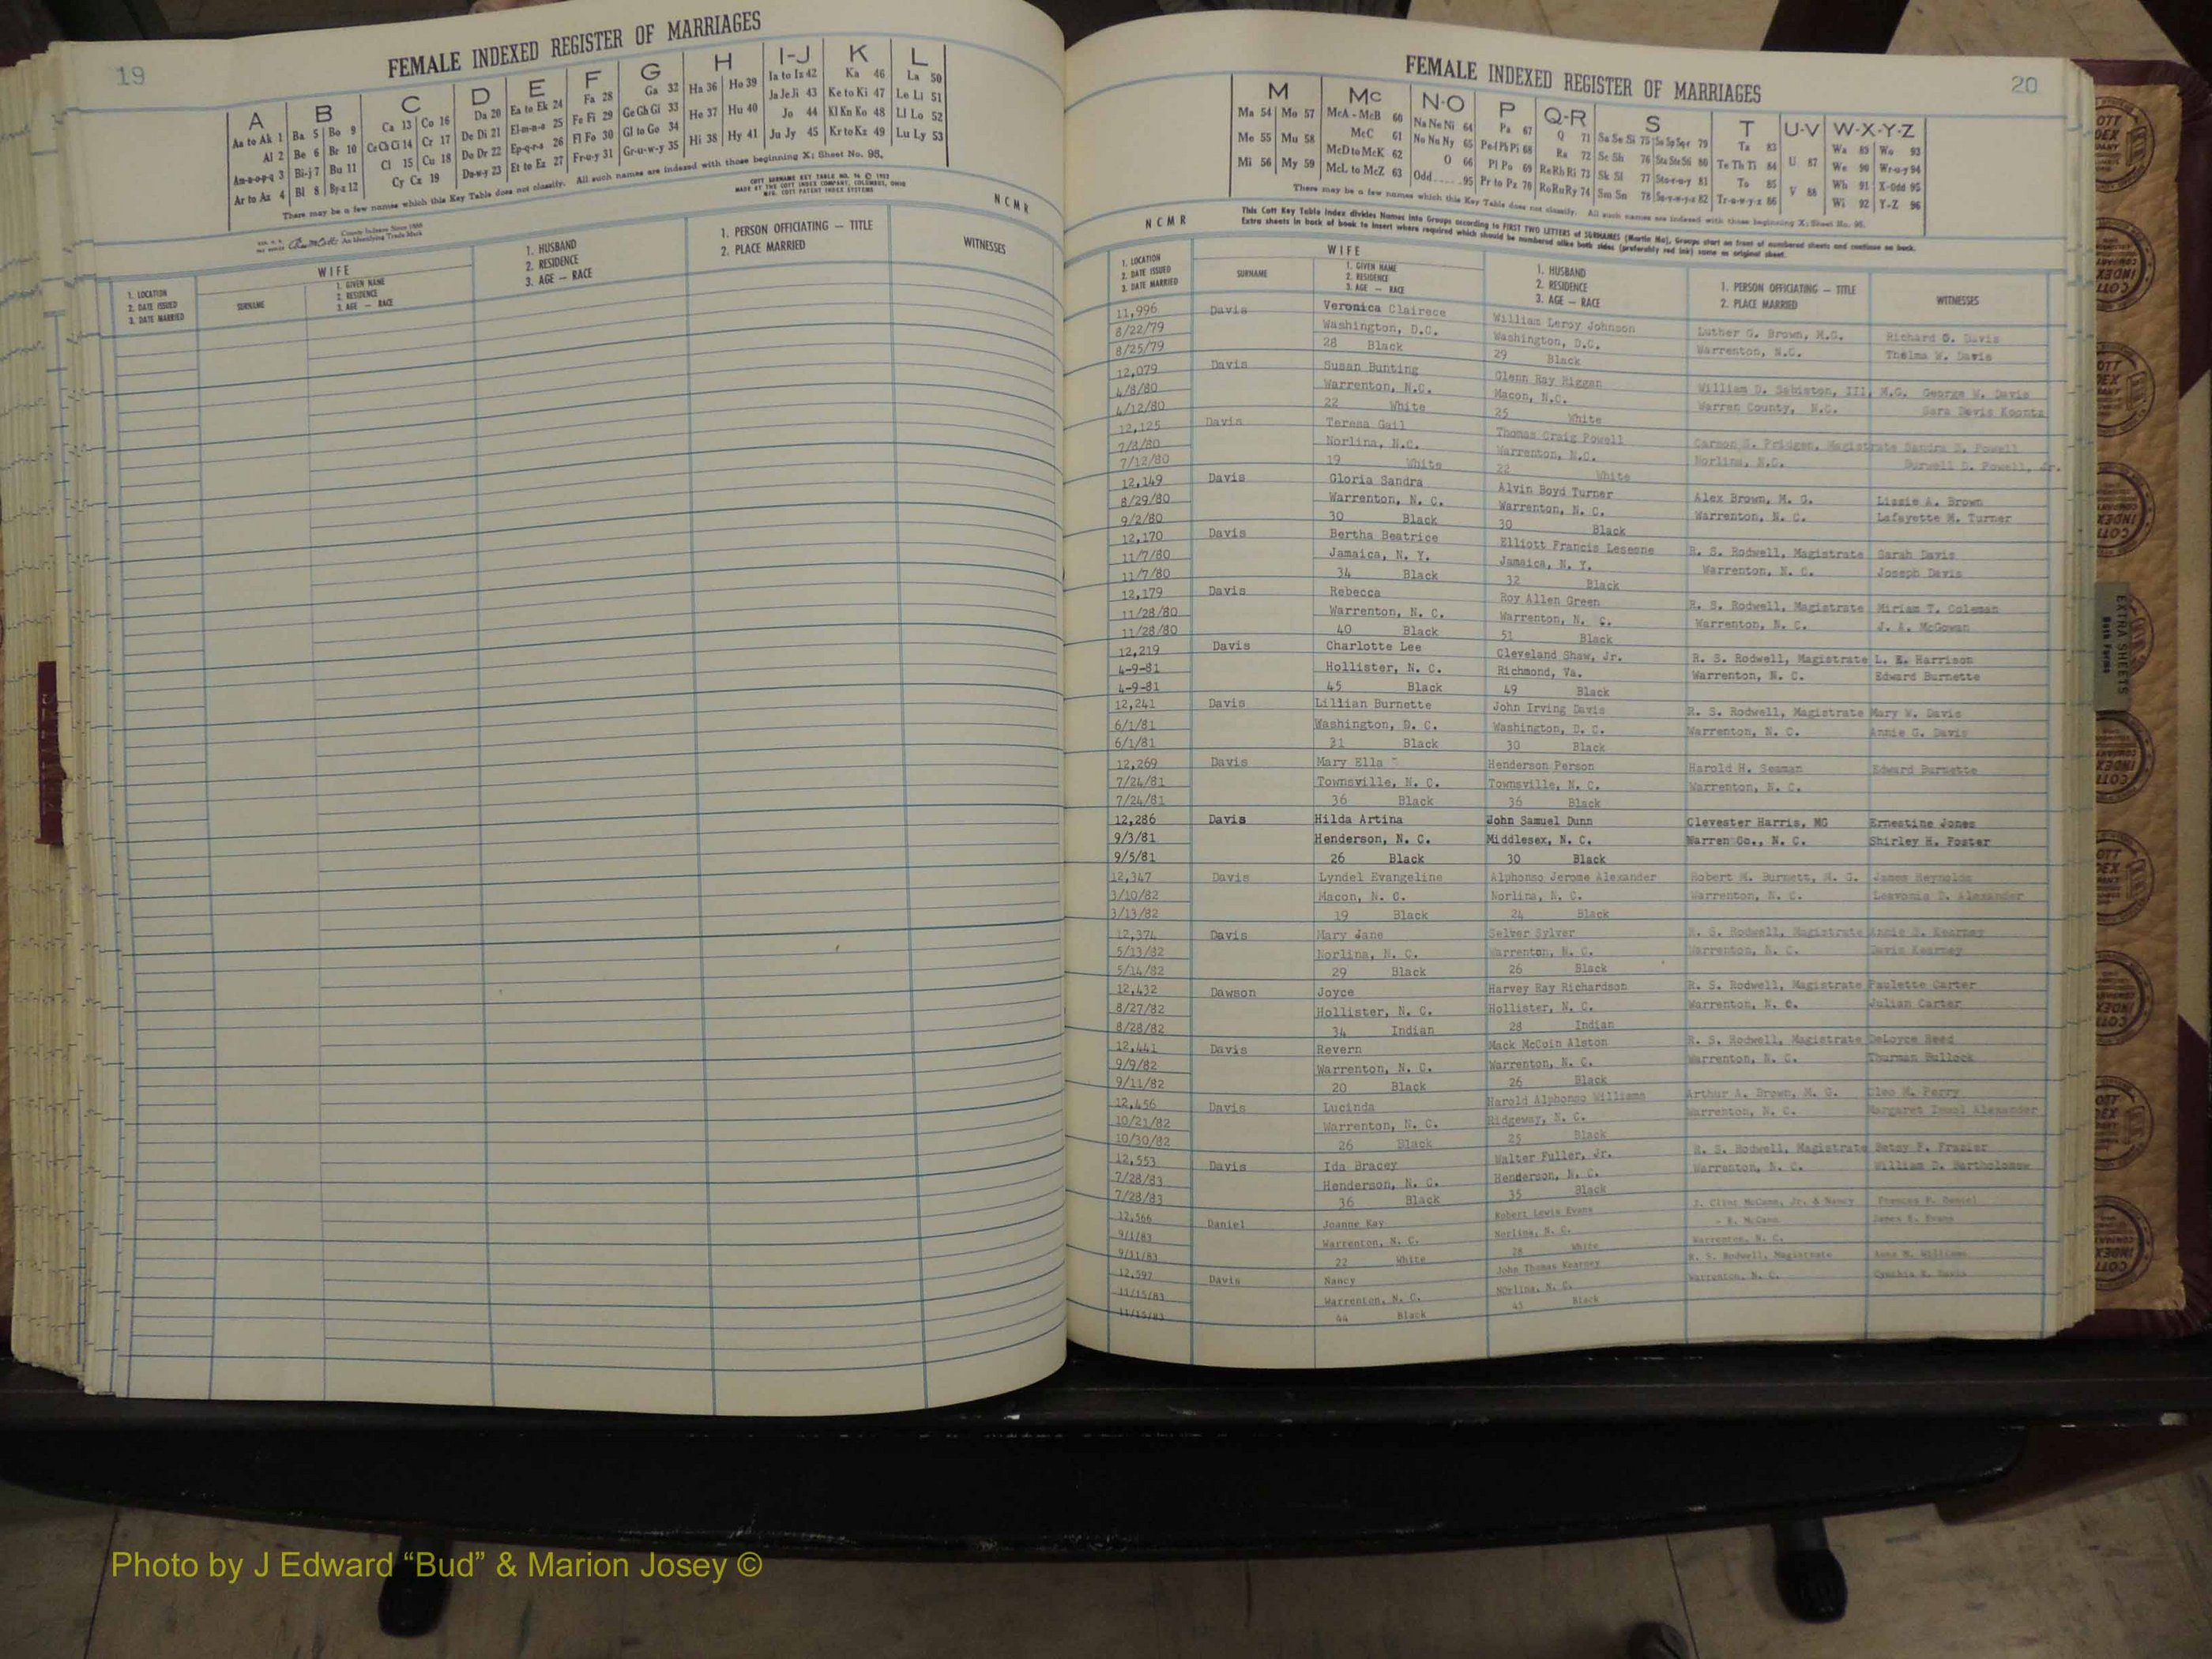 19
FEMALE INDEXED REGISTER OF MARRIAGES
A B C D E F G H I-J K L
Aa to Ak 1 Ba 5 Bo 9 Ca 13 Co 16 Da 20 Ea to Ek 24 Fa 28 Ga 32 Ha 36 Ho 39 Ia to Iz 42 Ka 46 La 50
Al 2 Be 6 Br 10 Ce Ch Ci 14 Cr 17 De Di 21 El-m-n-o 25 Fe Fi 29 Ge Gh Gi 33 He 37 Hu 40 Ja Je Ji 43 Ke to Ki 47 Le Li 51
Am-n-o-p-q 3 Bi-j 7 Bu 11 Cl 15 Cu 18 Do Dr 22 Ep-q-r-s 26 Fl Fo 30 Gl to Go 34 Hi 38 Hy 41 Jo 44 Kl Kn Ko 48 Ll Lo 52
Ar to Az 4 Bl 8 By-z 12 Cy Cz 19 Du-w-y 23 Et to Ez 27 Fr-u-y 31 Gr-u-w-y 35 Ju Jy 45 Kr to Kz 49 Lu Ly 53
There may be a few names which this Key Table does not classify. All such names are indexed with those beginning X; Sheet No. 95.
COTT SURNAME KEY TABLE NO. 96 © 1952
MADE AT THE COTT INDEX COMPANY, COLUMBUS, OHIO
MFG. COTT PATENT INDEX SYSTEMS
County Indexes Since 1888
An Identifying Trade Mark
N C M R
1. LOCATION
2. DATE ISSUED
3. DATE MARRIED
WIFE
SURNAME
1. GIVEN NAME
2. RESIDENCE
3. AGE — RACE
1. HUSBAND
2. RESIDENCE
3. AGE — RACE
1. PERSON OFFICIATING — TITLE
2. PLACE MARRIED
WITNESSES
20
FEMALE INDEXED REGISTER OF MARRIAGES
M Mc N-O P Q-R S T U-V W-X-Y-Z
Ma 54 Mo 57 McA - McB 60 Na Ne Ni 64 Pa 67 Q 71 Sa Se Si 75 So Sp Sq-r 79 Ta 83 U 87 Wa 89 Wo 93
Me 55 Mu 58 McC 61 No Nu Ny 65 Pe-f Ph Pi 68 Ra 72 Sc Sh 76 Sta Ste Sti 80 Te Th Ti 84 V 88 We 90 Wr-u-y 94
Mi 56 My 59 McD to McK 62 O 66 Pl Po 69 Re Rh Ri 73 Sk Sl 77 Sto-r-u-y 81 To 85 Wh 91 X-Odd 95
McL to McZ 63 Odd 95 Pr to Pz 70 Ro Ru Ry 74 Sm Sn 78 Su-v-w-y-z 82 Tr-u-w-y-z 86 Wi 92 Y-Z 96
There may be a few names which this Key Table does not classify. All such names are indexed with those beginning X; Sheet No. 95.
This Cott Key Table Index divides Names into Groups according to FIRST TWO LETTERS of SURNAMES (Martin Ma), Groups start on front of numbered sheets and continue on back.
Extra sheets in back of book to insert where required which should be numbered alike both sides (preferably red ink) same as original sheet.
N C M R
1. LOCATION
2. DATE ISSUED
3. DATE MARRIED
WIFE
SURNAME
1. GIVEN NAME
2. RESIDENCE
3. AGE — RACE
1. HUSBAND
2. RESIDENCE
3. AGE — RACE
1. PERSON OFFICIATING — TITLE
2. PLACE MARRIED
WITNESSES
11,996 Davis Veronica Clairece William Leroy Johnson Luther G. Brown, M.G. Richard O. Davis
8/22/79 Washington, D.C. Washington, D.C. Warrenton, N.C. Thelma W. Davis
8/25/79 28 Black 29 Black
12,079 Davis Susan Bunting Glenn Ray Riggan William D. Sabiston, III, M.G. George W. Davis
4/8/80 Warrenton, N.C. Macon, N.C. Warren County, N.C. Sara Davis Koontz
4/12/80 22 White 25 White
12,125 Davis Teresa Gail Thomas Craig Powell Carson S. Pridgen, Magistrate Sandra E. Powell
7/8/80 Norlina, N.C. Warrenton, N.C. Norlina, N.C. Burwell B. Powell, Jr.
7/12/80 19 White 22 White
12,149 Davis Gloria Sandra Alvin Boyd Turner Alex Brown, M. G. Lizzie A. Brown
8/29/80 Warrenton, N. C. Warrenton, N. C. Warrenton, N. C. Lafayette M. Turner
9/2/80 30 Black 30 Black
12,170 Davis Bertha Beatrice Elliott Francis Lesesne R. S. Rodwell, Magistrate Sarah Davis
11/7/80 Jamaica, N. Y. Jamaica, N. Y. Warrenton, N. C. Joseph Davis
11/7/80 34 Black 32 Black
12,179 Davis Rebecca Roy Allen Green R. S. Rodwell, Magistrate Miriam T. Coleman
11/28/80 Warrenton, N. C. Warrenton, N. C. Warrenton, N. C. J. A. McGowan
11/28/80 40 Black 51 Black
12,219 Davis Charlotte Lee Cleveland Shaw, Jr. R. S. Rodwell, Magistrate L. E. Harrison
4-9-81 Hollister, N. C. Richmond, Va. Warrenton, N. C. Edward Burnette
4-9-81 45 Black 49 Black
12,241 Davis Lillian Burnette John Irving Davis R. S. Rodwell, Magistrate Mary W. Davis
6/1/81 Washington, D. C. Washington, D. C. Warrenton, N. C. Annie G. Davis
6/1/81 31 Black 30 Black
12,269 Davis Mary Ella Henderson Person Harold H. Seaman Edward Burnette
7/24/81 Townsville, N. C. Townsville, N. C. Warrenton, N. C.
7/24/81 36 Black 36 Black
12,286 Davis Hilda Artina John Samuel Dunn Clevester Harris, MG Ernestine Jones
9/3/81 Henderson, N. C. Middlesex, N. C. Warren Co., N. C. Shirley H. Foster
9/5/81 26 Black 30 Black
12,347 Davis Lyndel Evangeline Alphonso Jerome Alexander Robert M. Burnett, M. G. James Reynolds
3/10/82 Macon, N. C. Norlina, N. C. Warrenton, N. C. Leavonia D. Alexander
3/13/82 19 Black 24 Black
12,374 Davis Mary Jane Selver Sylver R. S. Rodwell, Magistrate Annie B. Kearney
5/13/82 Norlina, N. C. Warrenton, N. C. Warrenton, N. C. Davis Kearney
5/14/82 29 Black 26 Black
12,432 Dawson Joyce Harvey Ray Richardson R. S. Rodwell, Magistrate Paulette Carter
8/27/82 Hollister, N. C. Hollister, N. C. Warrenton, N. C. Julian Carter
8/28/82 34 Indian 28 Indian
12,441 Davis Revern Mack McCoin Alston R. S. Rodwell, Magistrate DeLoyce Reed
9/9/82 Warrenton, N. C. Warrenton, N. C. Warrenton, N. C. Thurman Bullock
9/11/82 20 Black 26 Black
12,456 Davis Lucinda Harold Alphonso Williams Arthur A. Brown, M. G. Cleo M. Perry
10/21/82 Warrenton, N. C. Ridgeway, N. C. Warrenton, N. C. Margaret Alexander
10/30/82 26 Black 25 Black
12,553 Davis Ida Bracey Walter Fuller, Jr. R. S. Rodwell, Magistrate Betsy F. Frazier
7/28/83 Henderson, N. C. Henderson, N. C. Warrenton, N. C. William D. Bartholomew
7/28/83 36 Black 35 Black
12,566 Daniel Joanne Kay Robert Lewis Evans J. Cline McCann, Jr. & Nancy Frances P. Daniel
9/1/83 Warrenton, N. C. Norlina, N. C. - R. McCann James E. Evans
9/11/83 22 White 28 White Warrenton, N. C.
12,597 Davis Nancy John Thomas Kearney R. S. Rodwell, Magistrate Anna M. Williams
11/15/83 Warrenton, N. C. NOrlina, N. C. Warrenton, N. C. Cynthia R. Davis
11/15/83 44 Black 45 Black
EXTRA SHEETS
Both Forms
Photo by J Edward “Bud” & Marion Josey ©